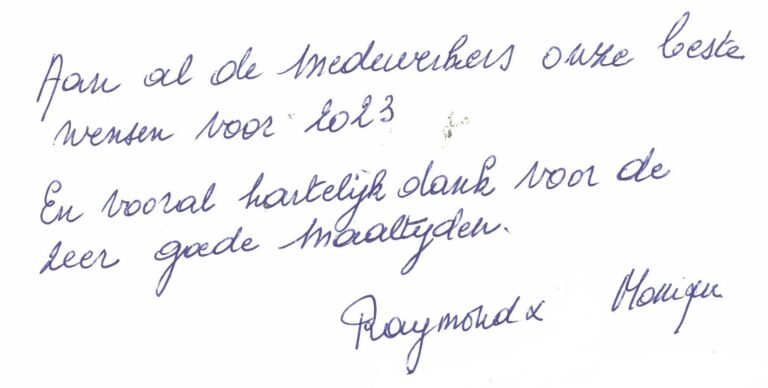 Aan al de medewerkers onze beste
wensen voor 2023
En vooral hartelijk dank voor de
zeer goede maaltyden.
Raymond x Monique